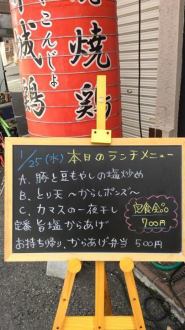 焼鶏
こんじょ
城鶏
1/25(水) 本日のランチメニュー
A. 豚と豆もやしの塩炒め
B. とり天 〜からしポンズ〜
C. カマスの一夜干し
定番 旨塩からあげ
定食全品
700円
お持ち帰り、からあげ弁当 500円